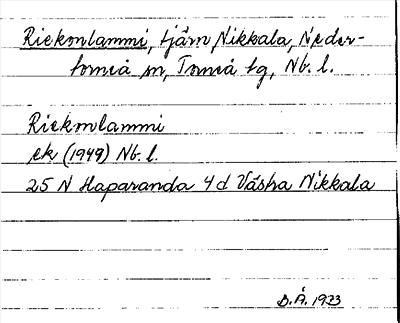 Riekonlammi, tjärn Nikkala, Neder-
torneå sn, Torneå tg, Nb. l.
Riekonlammi
ek (1949) Nb. l.
25 N Haparanda 4d Västra Nikkala
D.Å. 1973